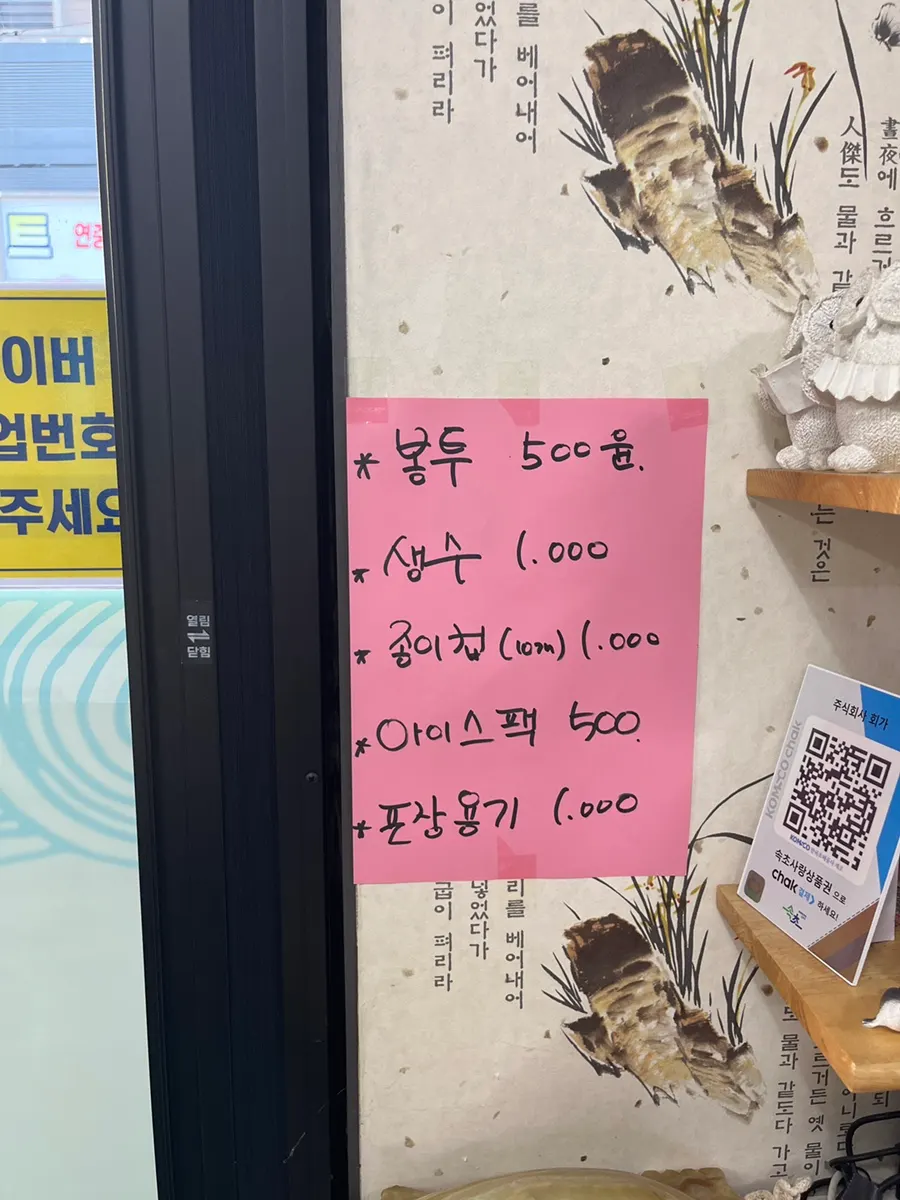 를 베어내어
었다가
이 펴리라
晝夜에 흐르거
人傑도 물과 같
트 연중
이버
업번호
주세요
열림
닫힘
* 봉투 500원.
* 생수 1.000
* 종이컵 (10개) 1.000
* 아이스팩 500.
* 포장용기 1.000
는 것은
주식회사 회가
KOMSCO chak
KOMSCO 한국조폐공사
속초사랑상품권 으로
chak 결제 하세요!
속초
리를 베어내어
넣었다가
굽이 펴리라
르거든 옛 물이
도 물과 같도다 가고